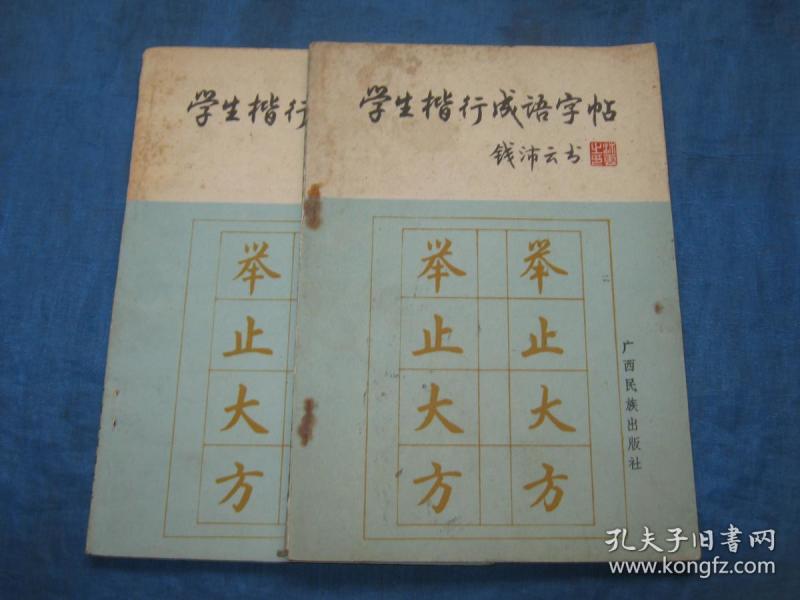 学生楷行
举
止
大
方
学生楷行成语字帖
钱沛云书
举 举
止 止
大 大
方 方
广西民族出版社
孔夫子旧书网
www.kongfz.com